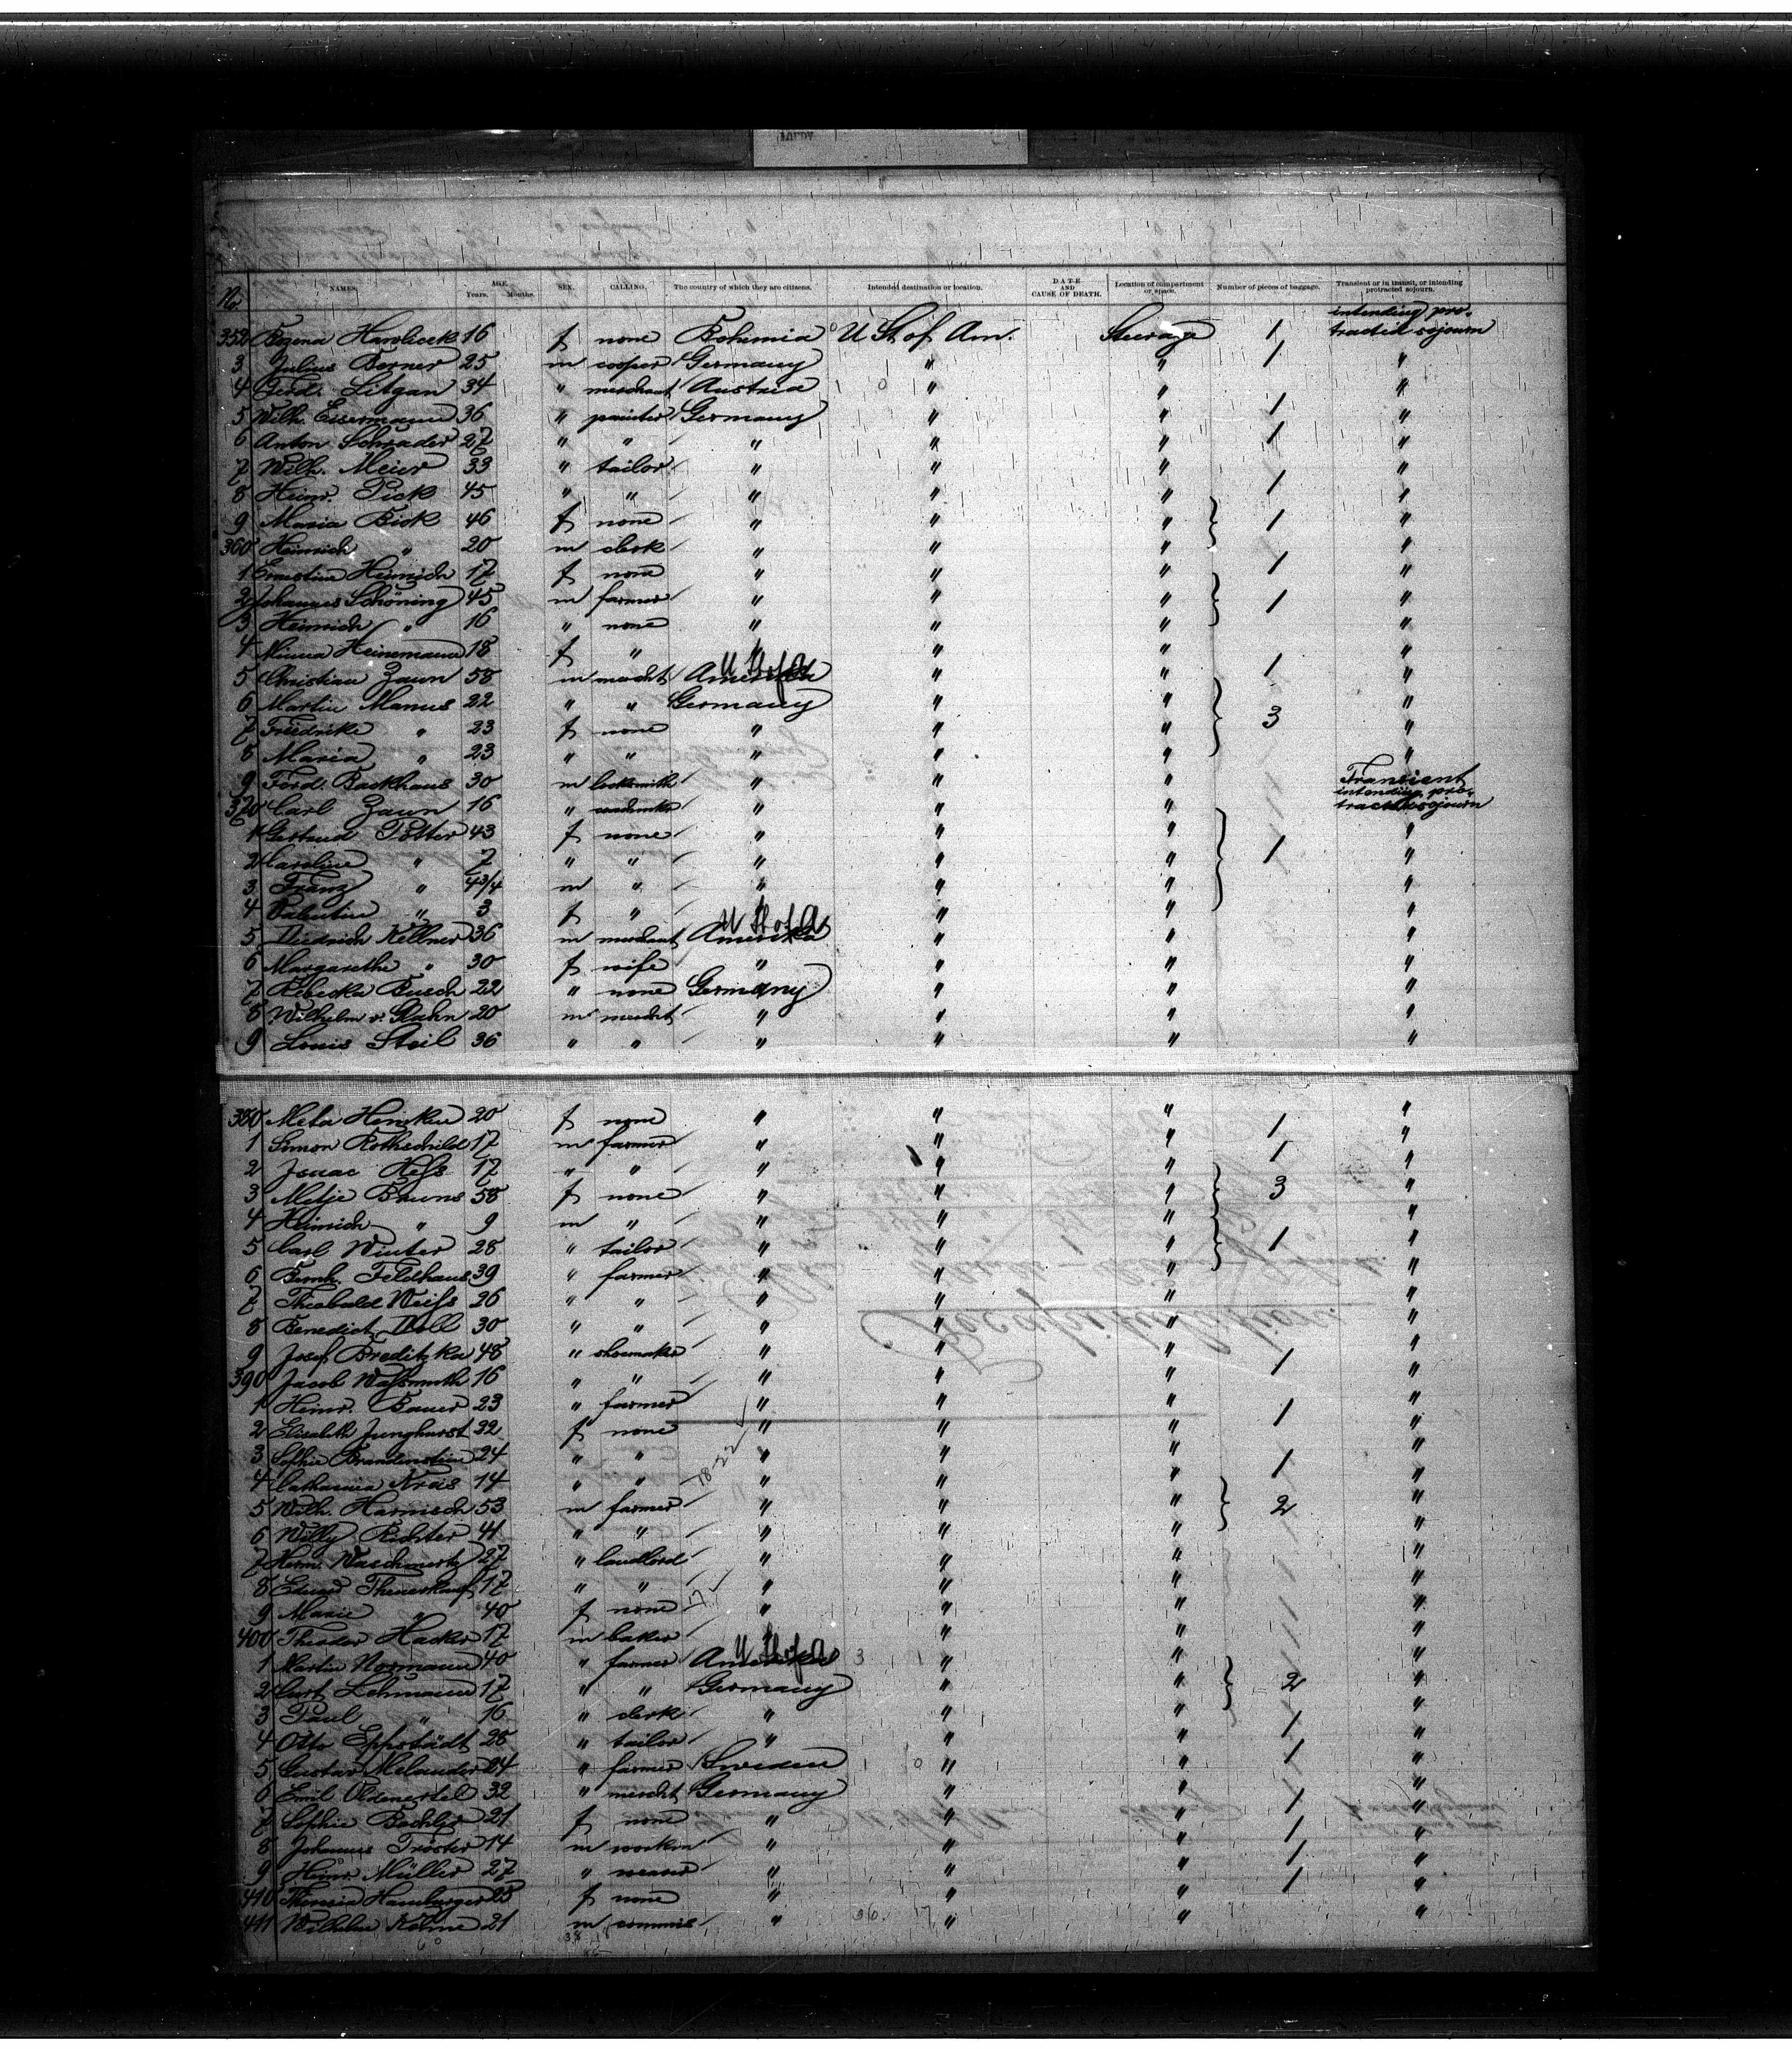 No. NAMES. AGE. Years. Months. SEX. CALLING. The country of which they are citizens. Intended destination or location. DATE AND CAUSE OF DEATH. Location of compartment or space. Number of pieces of baggage. Transient or in transit, or intending protracted sojourn.
352 Bozena Havlicek 16 f none Bohemia U St of Am. Steerage 1 intending protracted sojourn
3 Julius Borner 25 m cooper Germany " " 1 "
4 Ferd. Litgan 34 " merchant Austria " " "
5 Wilh. Eisermann 36 " painter Germany " " 1 "
6 Anton Schrader 27 " " " " " 1 "
7 Wilh. Meier 33 " tailor " " " "
8 Heinr. Pick 45 " " " " " 1 "
9 Maria Bick 46 f none " " " 1 "
360 Heinrich " 20 m clerk " " " "
1 Ernestine Heinrich 17 f none " " " 1 "
2 Johannes Schöning 45 m farmer " " " 1 "
3 Heinrich " 16 " none " " " "
4 Minna Heinemann 18 f " " " " "
5 Christian Zaun 58 m mercht America U St of A " " 1 "
6 Martin Manus 22 " " Germany " " 3 "
7 Friedrike " 23 f none " " " "
8 Maria " 23 " " " " " "
9 Ferd. Backhaus 30 m locksmith " " " Transient
370 Carl Zaun 16 " " " " intending protracted sojourn
1 Gertrud Potter 43 f none " " " 1 "
2 Caroline " 7 " " " " " "
3 Franz " 4 3/4 m " " " " "
4 Valentin " 3 f " " " " "
5 Diedrich Kellner 36 m merchant America U St of A " " "
6 Margarethe " 30 f wife " " " "
7 Rebecka Busch 22 " none Germany " " "
8 Wilhelm v. Glahn 20 m mercht " " " "
9 Louis Steil 36 " " " " " "
380 Meta Hencken 20 f none " " " 1 "
1 Simon Rothschild 17 m farmer " " " 1 "
2 Isaac Heß 17 " " " " " "
3 Metje Bruns 58 f none " " " 3 "
4 Heinrich " 9 m " " " " "
5 Carl Winter 28 " tailor " " " 1 "
6 Bernh. Feldhaus 39 " farmer " " " "
7 Theobald Weiß 26 " " " " " "
8 Benedict Doll 30 " " " " " "
9 Josef Breditzka 48 " shoemaker " " " 1 "
390 Jacob Waßmuth 16 " " " " " "
1 Heinr. Bauer 23 " farmer " " " 1 "
2 Elisabeth Junghurst 32 f none " " " "
3 Sophie Brandenstein 24 " " " " " 1 "
4 Catharina Nrais 14 " " " " " "
5 Wilh. Harnisch 53 m farmer " " " 2 "
6 Willy Richter 41 " " " " " "
7 Herm. Waschmertz 27 " landlord " " " "
8 Eduard 17 " " " " " "
9 Marie " 40 f none " " " "
400 Theodor Hacker 17 m baker " " " "
1 Martin Normann 40 " farmer America U St of A " " "
2 Curt Lehmann 17 " " Germany " " 2 "
3 Paul " 16 " clerk " " " "
4 Otto Eppstädt 28 " tailor " " " 1 "
5 Gustav Melander 24 " farmer Sweden " " 1 "
6 Emil Oldenertel 32 " mercht Germany " " 1 "
7 Sophie Bachler 21 f none " " " 1 "
8 Johannes Tröster 14 m " " " 1 "
9 Heinr. Müller 27 " weaver " " " 1 "
410 Theresia Hamburger 25 f none " " " "
411 Wilhelm Köhne 21 m commis " " " "